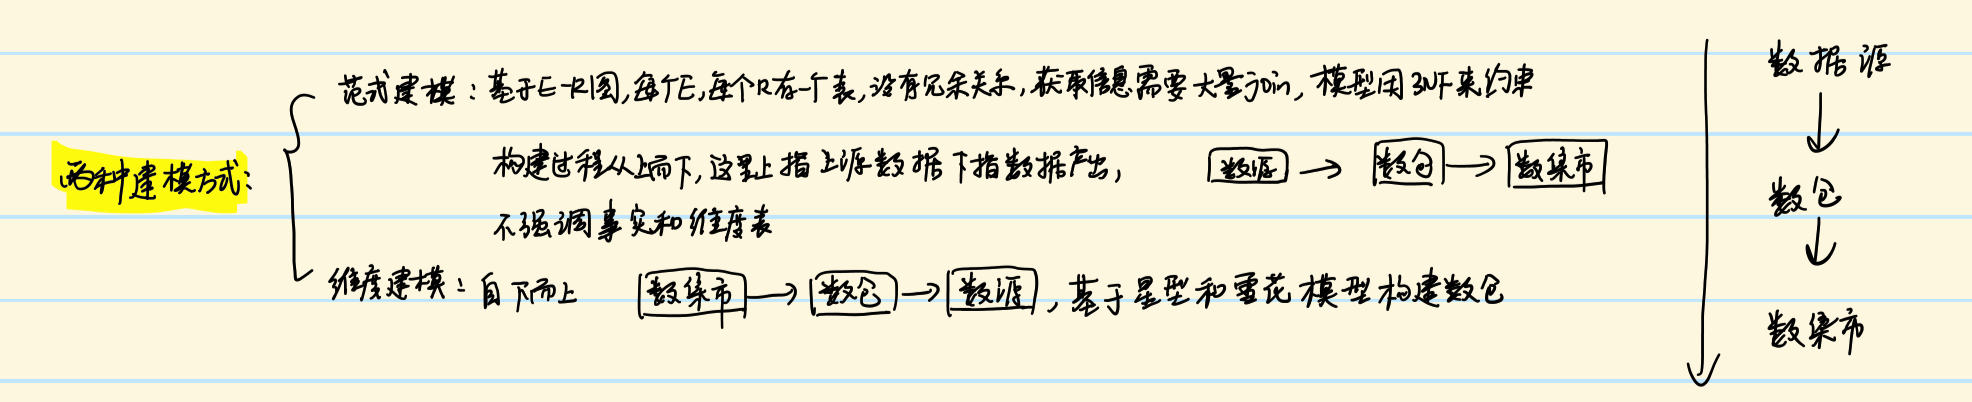 两种建模方式:
范式建模: 基于E-R图,每个E,每个R存一个表,没有冗余关系,获取信息需要大量join,模型用3NF来约束
构建过程从上而下,这里上指上源数据下指数据产出, 数源 → 数仓 → 数集市
不强调事实和维度表
维度建模: 自下而上 数集市 → 数仓 → 数源, 基于星型和雪花模型构建数仓
数据源
↓
数仓
↓
数集市